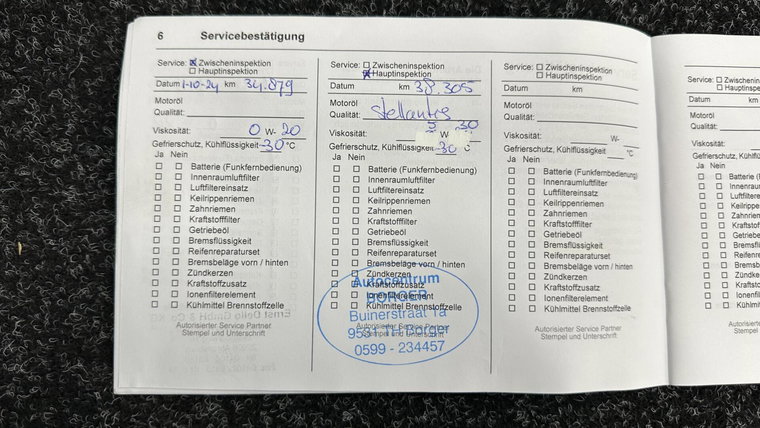 6 Servicebestätigung
Service: ☒ Zwischeninspektion
☐ Hauptinspektion
Datum 1-10-24 km 34.879
Motoröl
Qualität:
Viskosität: 0 W- 20
Gefrierschutz, Kühlflüssigkeit -30 °C
Ja Nein
☐ ☐ Batterie (Funkfernbedienung)
☐ ☐ Innenraumluftfilter
☐ ☐ Luftfiltereinsatz
☐ ☐ Keilrippenriemen
☐ ☐ Zahnriemen
☐ ☐ Kraftstofffilter
☐ ☐ Getriebeöl
☐ ☐ Bremsflüssigkeit
☐ ☐ Reifenreparaturset
☐ ☐ Bremsbeläge vorn / hinten
☐ ☐ Zündkerzen
☐ ☐ Kraftstoffzusatz
☐ ☐ Ionenfilterelement
☐ ☐ Kühlmittel Brennstoffzelle
Autorisierter Service Partner
Stempel und Unterschrift
Service: ☐ Zwischeninspektion
☒ Hauptinspektion
Datum km 38.305
Motoröl
Qualität: Stellantis
Viskosität: 5 W 30
Gefrierschutz, Kühlflüssigkeit -30 °C
Ja Nein
☐ ☐ Batterie (Funkfernbedienung)
☐ ☐ Innenraumluftfilter
☐ ☐ Luftfiltereinsatz
☐ ☐ Keilrippenriemen
☐ ☐ Zahnriemen
☐ ☐ Kraftstofffilter
☐ ☐ Getriebeöl
☐ ☐ Bremsflüssigkeit
☐ ☐ Reifenreparaturset
☐ ☐ Bremsbeläge vorn / hinten
☐ ☐ Zündkerzen
☐ ☐ Kraftstoffzusatz
☐ ☐ Ionenfilterelement
☐ ☐ Kühlmittel Brennstoffzelle
Autorisierter Service Partner
Stempel und Unterschrift
Autocentrum
BORGER
Buinerstraat 1a
9531 TH Borger
0599 - 234457
Service: ☐ Zwischeninspektion
☐ Hauptinspektion
Datum km
Motoröl
Qualität:
Viskosität: W-
Gefrierschutz, Kühlflüssigkeit °C
Ja Nein
☐ ☐ Batterie (Funkfernbedienung)
☐ ☐ Innenraumluftfilter
☐ ☐ Luftfiltereinsatz
☐ ☐ Keilrippenriemen
☐ ☐ Zahnriemen
☐ ☐ Kraftstofffilter
☐ ☐ Getriebeöl
☐ ☐ Bremsflüssigkeit
☐ ☐ Reifenreparaturset
☐ ☐ Bremsbeläge vorn / hinten
☐ ☐ Zündkerzen
☐ ☐ Kraftstoffzusatz
☐ ☐ Ionenfilterelement
☐ ☐ Kühlmittel Brennstoffzelle
Autorisierter Service Partner
Stempel und Unterschrift
Service: ☐ Zwischenin
☐ Hauptinspe
Datum km
Motoröl
Qualität:
Viskosität:
Gefrierschutz, Kühlflüssig
Ja Nein
☐ ☐ Batterie (F
☐ ☐ Innenraum
☐ ☐ Luftfiltere
☐ ☐ Keilrippe
☐ ☐ Zahnriem
☐ ☐ Kraftstoff
☐ ☐ Getriebe
☐ ☐ Bremsfl
☐ ☐ Reifenre
☐ ☐ Bremsbe
☐ ☐ Zündke
☐ ☐ Kraftsto
☐ ☐ Ionenfil
☐ ☐ Kühlmi
Autorisi
Stemp